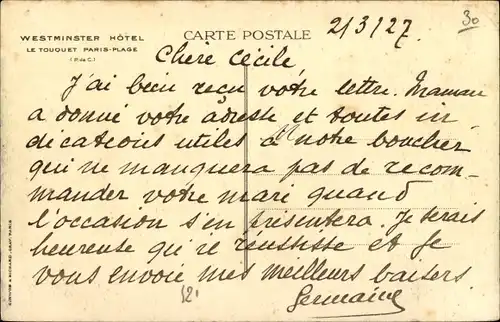 WESTMINSTER HÔTEL
LE TOUQUET PARIS-PLAGE
(P. de C.)
CARTE POSTALE
30
2/3/27.
Chère Cécile
J'ai bien reçu votre lettre. Maman
a donné votre adresse et toutes in
dications utiles à notre boucher
qui ne manquera pas de recom-
mander votre mari quand
l'occasion s'en présentera. Je serais
heureuse qu'il réussisse et je
vous envoie mes meilleurs baisers.
Germaine